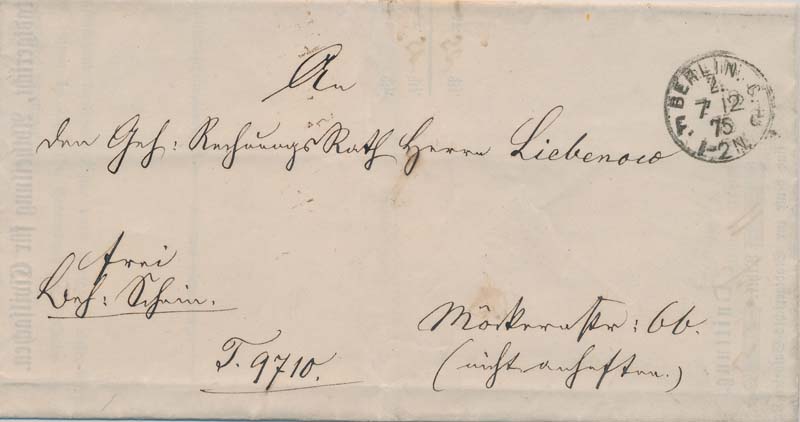 An
den Geh: Rechnungs Rath Herrn Liebenow
frei
Beh: Schein.
T. 9710.
Möckernstr: 66.
(nicht anheften.)
BERLIN
7 12
75
1-2 N.